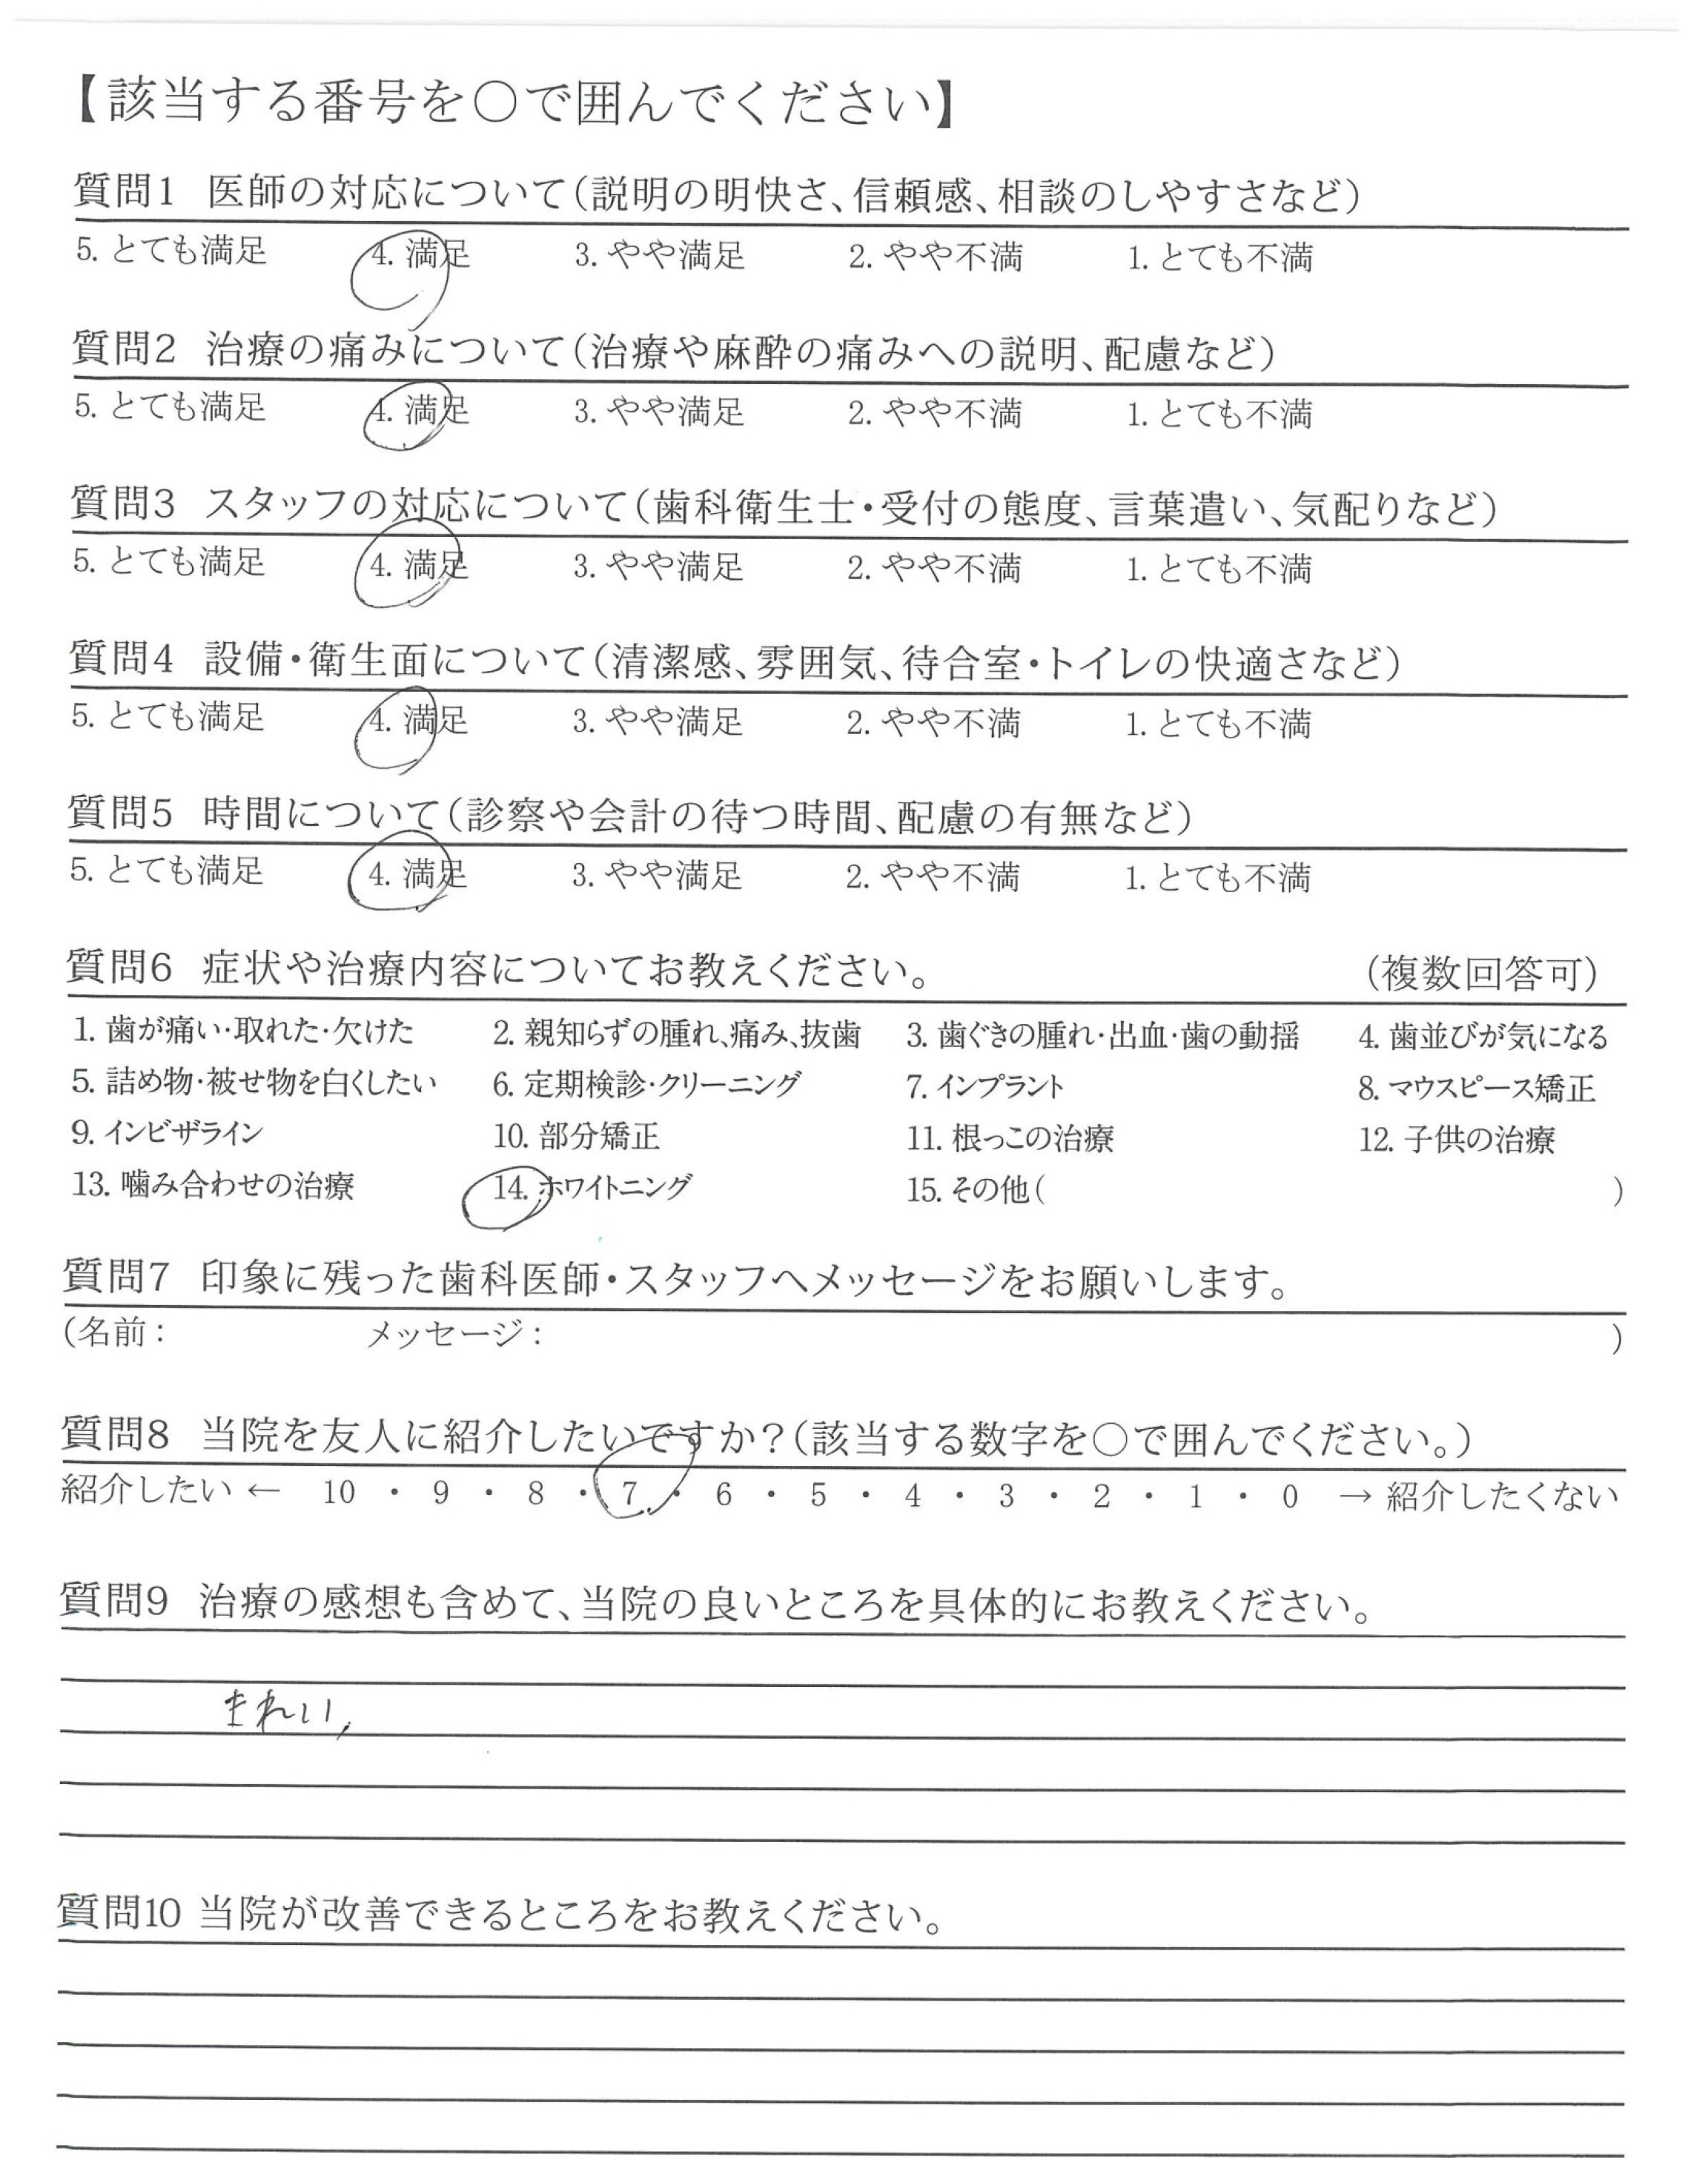 【該当する番号を〇で囲んでください】
質問1 医師の対応について(説明の明快さ、信頼感、相談のしやすさなど)
5. とても満足 4. 満足 3. やや満足 2. やや不満 1. とても不満
質問2 治療の痛みについて(治療や麻酔の痛みへの説明、配慮など)
5. とても満足 4. 満足 3. やや満足 2. やや不満 1. とても不満
質問3 スタッフの対応について(歯科衛生士・受付の態度、言葉遣い、気配りなど)
5. とても満足 4. 満足 3. やや満足 2. やや不満 1. とても不満
質問4 設備・衛生面について(清潔感、雰囲気、待合室・トイレの快適さなど)
5. とても満足 4. 満足 3. やや満足 2. やや不満 1. とても不満
質問5 時間について(診察や会計の待つ時間、配慮の有無など)
5. とても満足 4. 満足 3. やや満足 2. やや不満 1. とても不満
質問6 症状や治療内容についてお教えください。 (複数回答可)
1. 歯が痛い・取れた・欠けた 2. 親知らずの腫れ、痛み、抜歯 3. 歯ぐきの腫れ・出血・歯の動揺 4. 歯並びが気になる
5. 詰め物・被せ物を白くしたい 6. 定期検診・クリーニング 7. インプラント 8. マウスピース矯正
9. インビザライン 10. 部分矯正 11. 根っこの治療 12. 子供の治療
13. 噛み合わせの治療 14. ホワイトニング 15. その他( )
質問7 印象に残った歯科医師・スタッフへメッセージをお願いします。
(名前: メッセージ: )
質問8 当院を友人に紹介したいですか?(該当する数字を〇で囲んでください。)
紹介したい ← 10 ・ 9 ・ 8 ・ 7 ・ 6 ・ 5 ・ 4 ・ 3 ・ 2 ・ 1 ・ 0 → 紹介したくない
質問9 治療の感想も含めて、当院の良いところを具体的にお教えください。
きれい、
質問10 当院が改善できるところをお教えください。